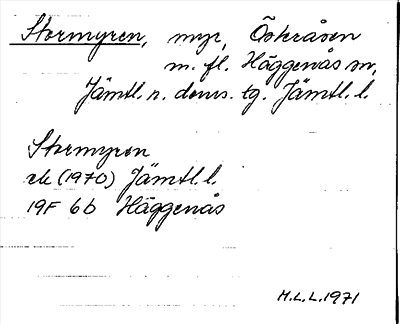 Stormyren, myr, Öskråsen
m. fl. Häggenås sn,
Jämtl. n. doms. tg. Jämtl. l.
Stormyren
ek (1970) Jämtl. l.
19F 6b Häggenås
M.L.L. 1971